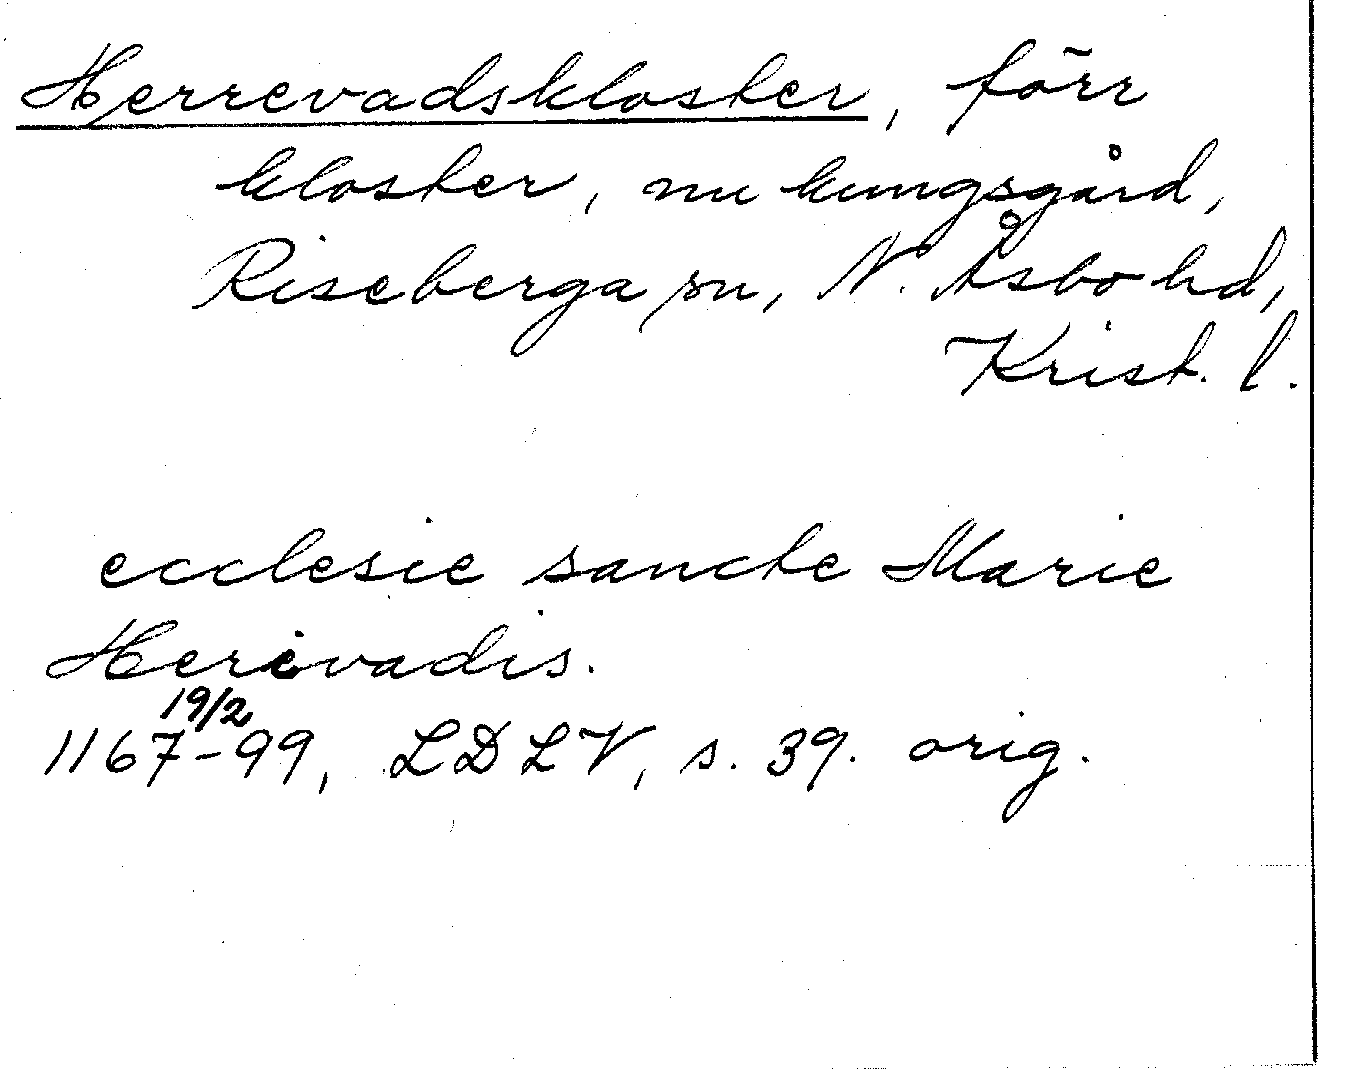 Herrevadskloster, förr
kloster, nu kungsgård,
Riseberga sn, N. Åsbo hd,
Krist. l.
ecclesie sancte Marie
Herivadis.
19/2
1167-99, LDLV, s. 39. orig.